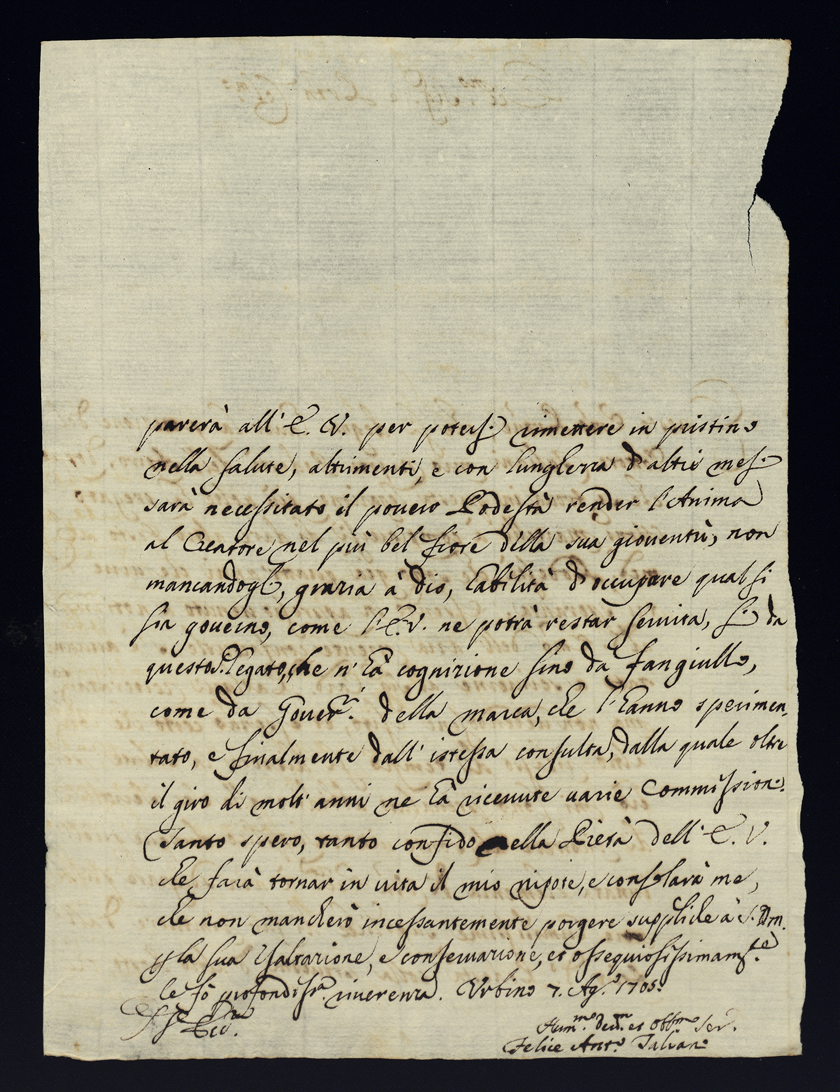 parerà all' E. V. per potersi rimettere in pristino
nella salute, altrimenti, e con lunglerra d'altri mesi
sarà necessitato il povero Podestà render l'Anima
al Creatore nel più bel fiore della sua gioventù, non
mancandogli, grazia à Dio, l'abilità d'occupare qual si
sia governo, come l'E.V. ne potrà restar servita, si da
questo Legato, che n'hà cognizione sino da fangiullo,
come da Goverri. della marca, che l'hanno sperimen-
tato, e finalmente dall' istessa consulta, dalla quale oltre
il giro di molt' anni ne hà ricevute varie Commissioni.
Tanto spero, tanto confido nella Pietà dell' E. V.
che farà tornar in vita il mio nipote, e consolarà me,
che non mancherò incessantemente porgere suppliche à S. Dm.
p la sua Esaltazione, e conservazione, et ossequiosissimamte.
le fò profondissa. riverenza. Urbino 7. Agº. 1705.
Hummo. devmo. et obbmo. Ser.
Felice Anto.